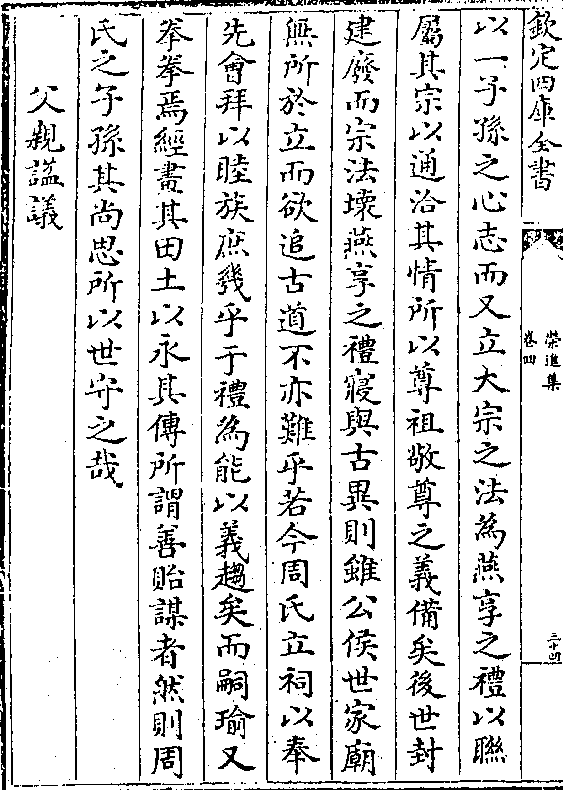 欽定四庫全書
榮進集
卷四
三十四
以一子孫之心志而又立大宗之法為燕享之禮以聯
屬其宗以通洽其情所以尊祖敬尊之義備矣後世封
建廢而宗法壞燕享之禮寖與古異則雖公侯世家廟
無所於立而欲追古道不亦難乎若今周氏立祠以奉
先會拜以睦族庶幾乎于禮為能以義趨矣而嗣瑜又
拳拳焉經畫其田土以永其傳所謂善貽謀者然則周
氏之子孫其尚思所以世守之哉
父親謚議